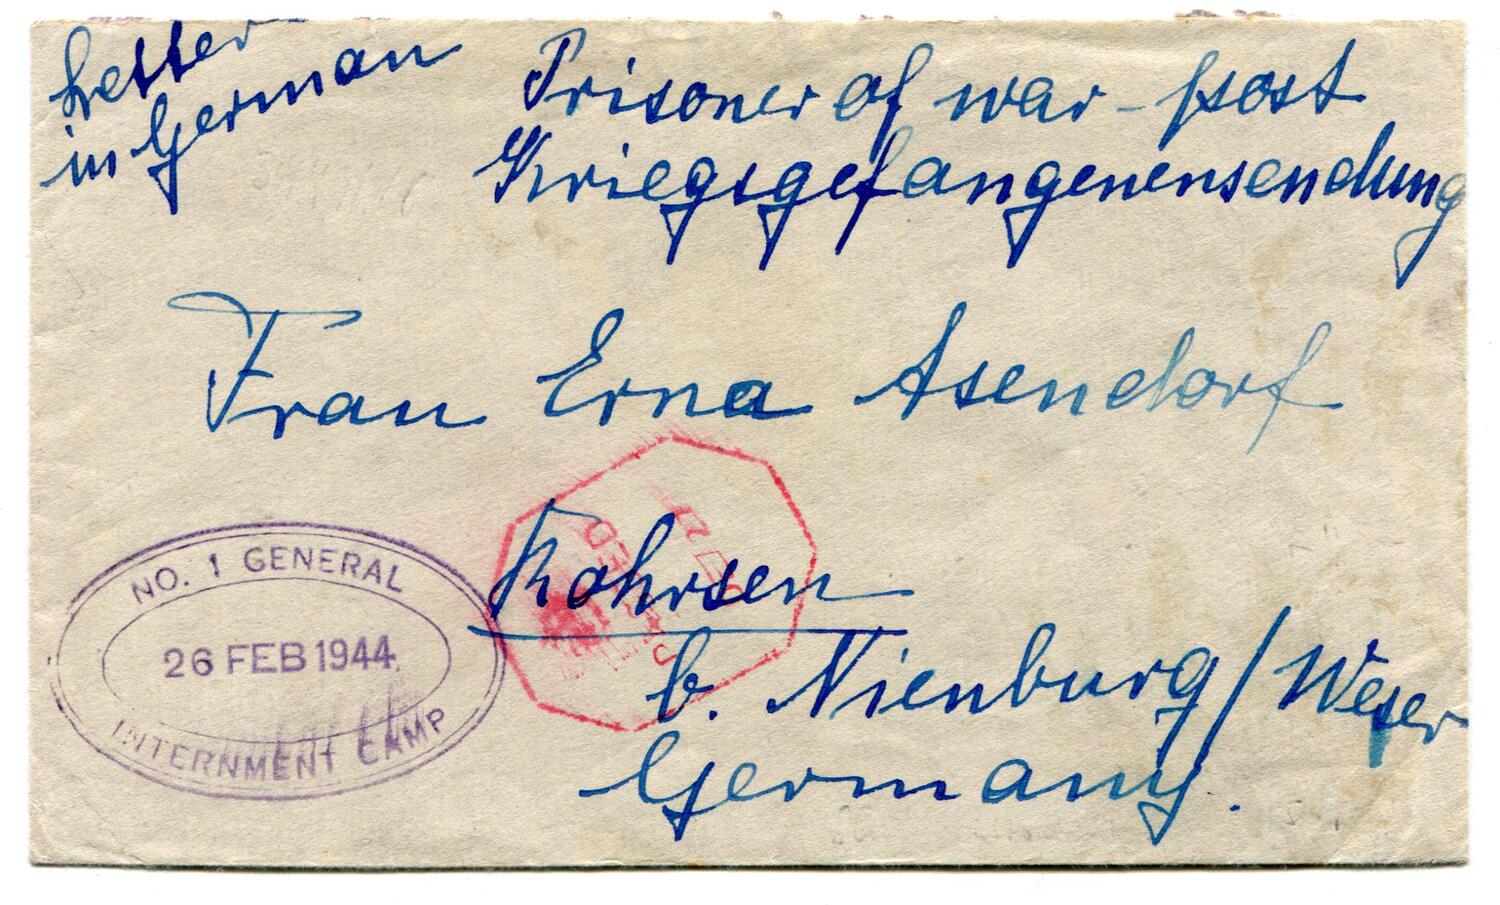 Letter
in German
Prisoner of war - post
Kriegsgefangenensendung
Frau Erna Asendorf
Rohrsen
b. Nienburg / Weser
Germany.
NO. 1 GENERAL
26 FEB 1944
INTERNMENT CAMP